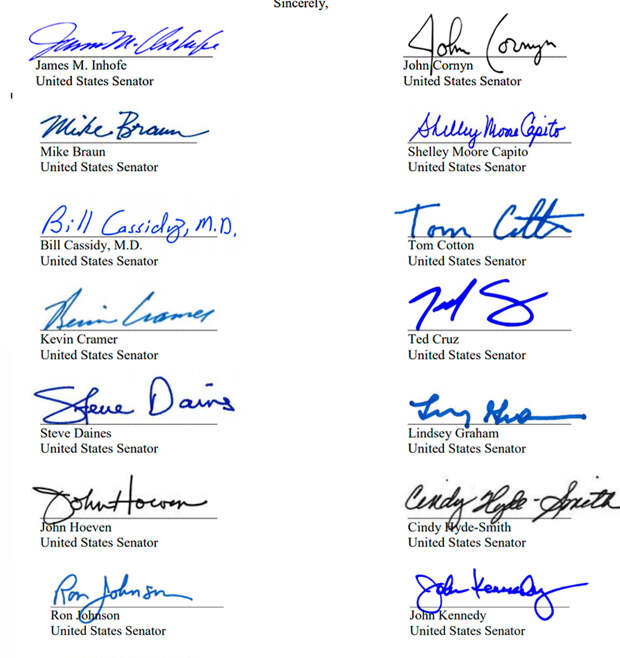 Sincerely,
James M. Inhofe
James M. Inhofe
United States Senator
John Cornyn
John Cornyn
United States Senator
Mike Braun
Mike Braun
United States Senator
Shelley Moore Capito
Shelley Moore Capito
United States Senator
Bill Cassidy, M.D.
Bill Cassidy, M.D.
United States Senator
Tom Cotton
Tom Cotton
United States Senator
Kevin Cramer
Kevin Cramer
United States Senator
Ted Cruz
United States Senator
Steve Daines
Steve Daines
United States Senator
Lindsey Graham
United States Senator
John Hoeven
John Hoeven
United States Senator
Cindy Hyde-Smith
Cindy Hyde-Smith
United States Senator
Ron Johnson
Ron Johnson
United States Senator
John Kennedy
John Kennedy
United States Senator